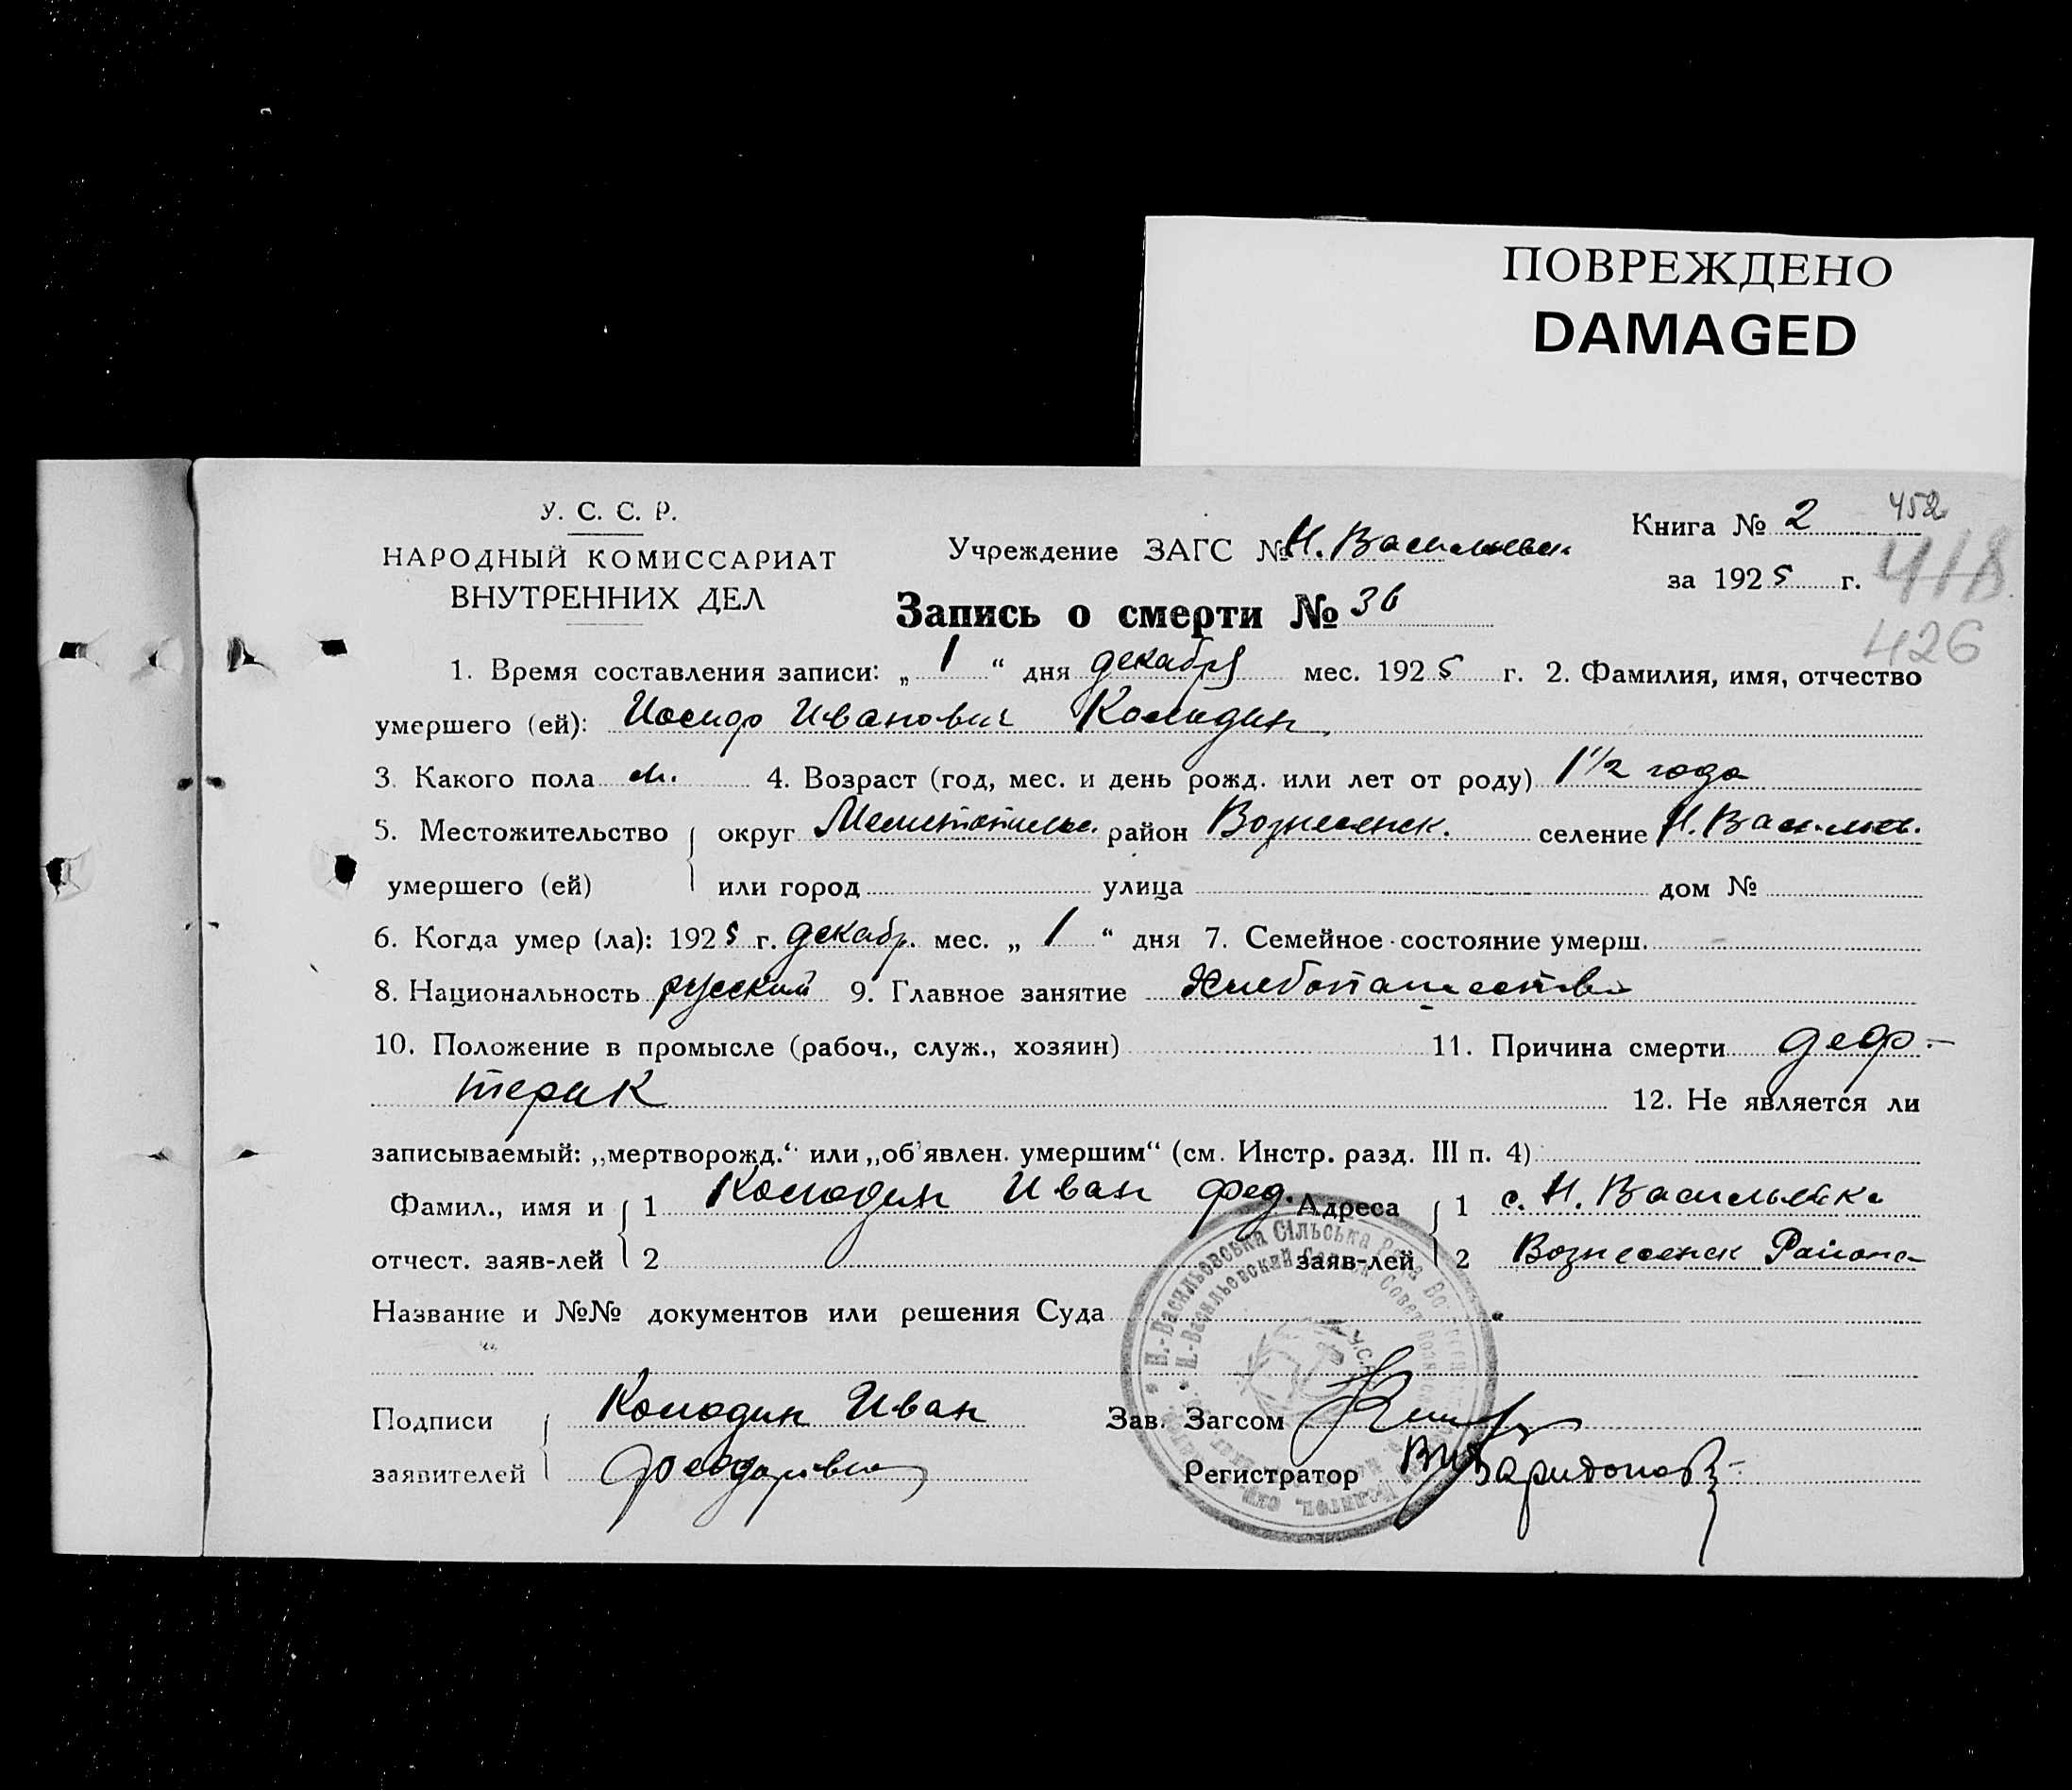 ПОВРЕЖДЕНО
DAMAGED
У. С. С. Р.
НАРОДНЫЙ КОМИССАРИАТ
ВНУТРЕННИХ ДЕЛ
Учреждение ЗАГС № Н. Васильевк
Книга № 2 452
за 1925 г. 418
Запись о смерти № 36
426
1. Время составления записи: „ 1 “ дня декабря мес. 1925 г. 2. Фамилия, имя, отчество
умершего (ей): Иосиф Иванович
3. Какого пола м. 4. Возраст (год, мес. и день рожд. или лет от роду) 1 1/2 года
5. Местожительство округ Мелитопольс. район Вознесенск. селение Н. Васильев.
умершего (ей) или город улица дом №
6. Когда умер (ла): 1925 г. декабр. мес. „ 1 “ дня 7. Семейное состояние умерш. –
8. Национальность русский 9. Главное занятие Хлебопашество
10. Положение в промысле (рабоч., служ., хозяин) 11. Причина смерти деф-
терик 12. Не является ли
записываемый: „мертворожд.“ или „об'явлен. умершим“ (см. Инстр. разд. III п. 4)
Фамил., имя и 1 Иван Фед. Адреса 1 с. Н. Васильевка
отчест. заяв-лей 2 заяв-лей 2 Вознесенск Района
Название и №№ документов или решения Суда
Подписи Иван Зав. Загсом
заявителей Регистратор
Н.-Васильовська Сільська Рада
Н.-Васильевский Сельск. Совет
У.С.Р.Р.